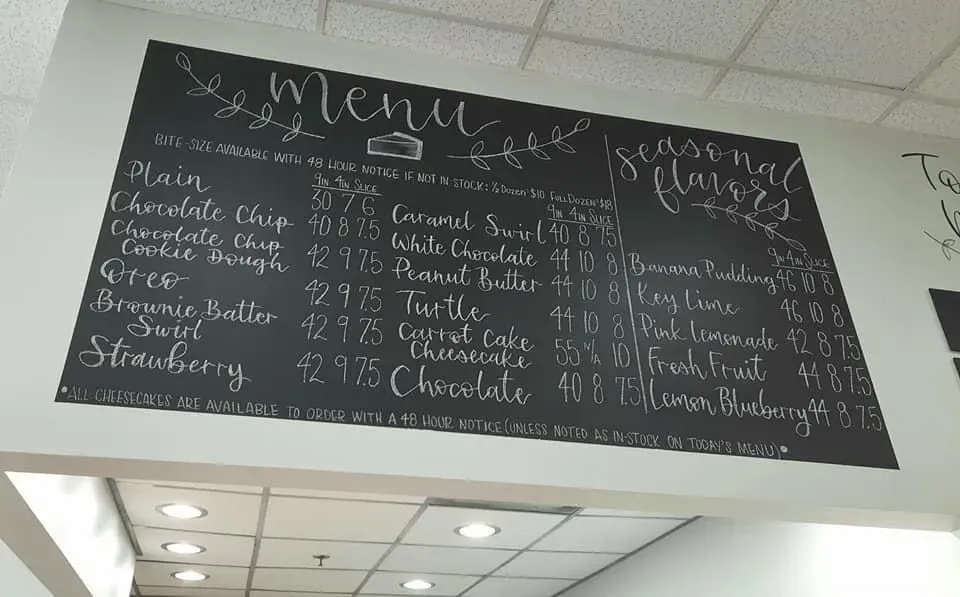 Menu
BITE-SIZE AVAILABLE WITH 48 HOUR NOTICE IF NOT IN STOCK: ½ DOZEN $10 FULL DOZEN $18
9IN 4IN SLICE
Plain 30 7 6
Chocolate Chip 40 8 7.5
Chocolate Chip
Cookie Dough 42 9 7.5
Oreo 42 9 7.5
Brownie Batter
Swirl 42 9 7.5
Strawberry 42 9 7.5
9IN 4IN SLICE
Caramel Swirl 40 8 7.5
White Chocolate 44 10 8
Peanut Butter 44 10 8
Turtle 44 10 8
Carrot Cake
Cheesecake 55 N/A 10
Chocolate 40 8 7.5
seasonal
flavors
9IN 4IN SLICE
Banana Pudding 46 10 8
Key Lime 46 10 8
Pink Lemonade 42 8 7.5
Fresh Fruit 44 8 7.5
Lemon Blueberry 44 8 7.5
•ALL CHEESECAKES ARE AVAILABLE TO ORDER WITH A 48 HOUR NOTICE (UNLESS NOTED AS IN-STOCK ON TODAY'S MENU)•